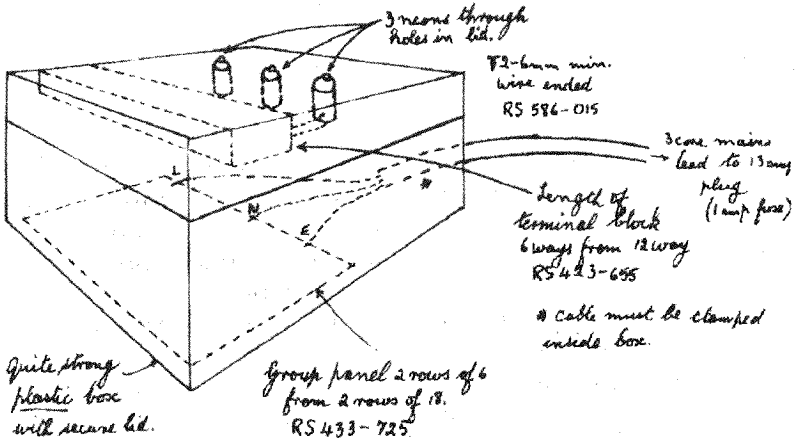 3 neons through
holes in lid.
2-6mm min.
wire ended
RS 586-015
3 core mains
lead to 13 amp
plug
(1 amp fuse)
L
N
E
#
Length of
terminal block
6 ways from 12 way
RS 423-655
# cable must be clamped
inside box.
Quite strong
plastic box
with secure lid.
Group panel 2 rows of 6
from 2 rows of 18.
RS 433-725